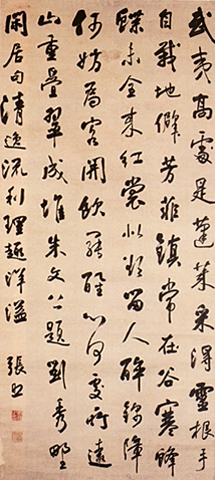 武夷高處是蓬萊采得靈根手
自栽地僻芳菲鎮常在谷寒蜂
蝶未全來紅裳似欲留人醉錦障
何妨為客開飲罷醒心何處所遠
山重疊翠成堆朱文公題劉秀野
閑居句清逸流利理趣洋溢 張照